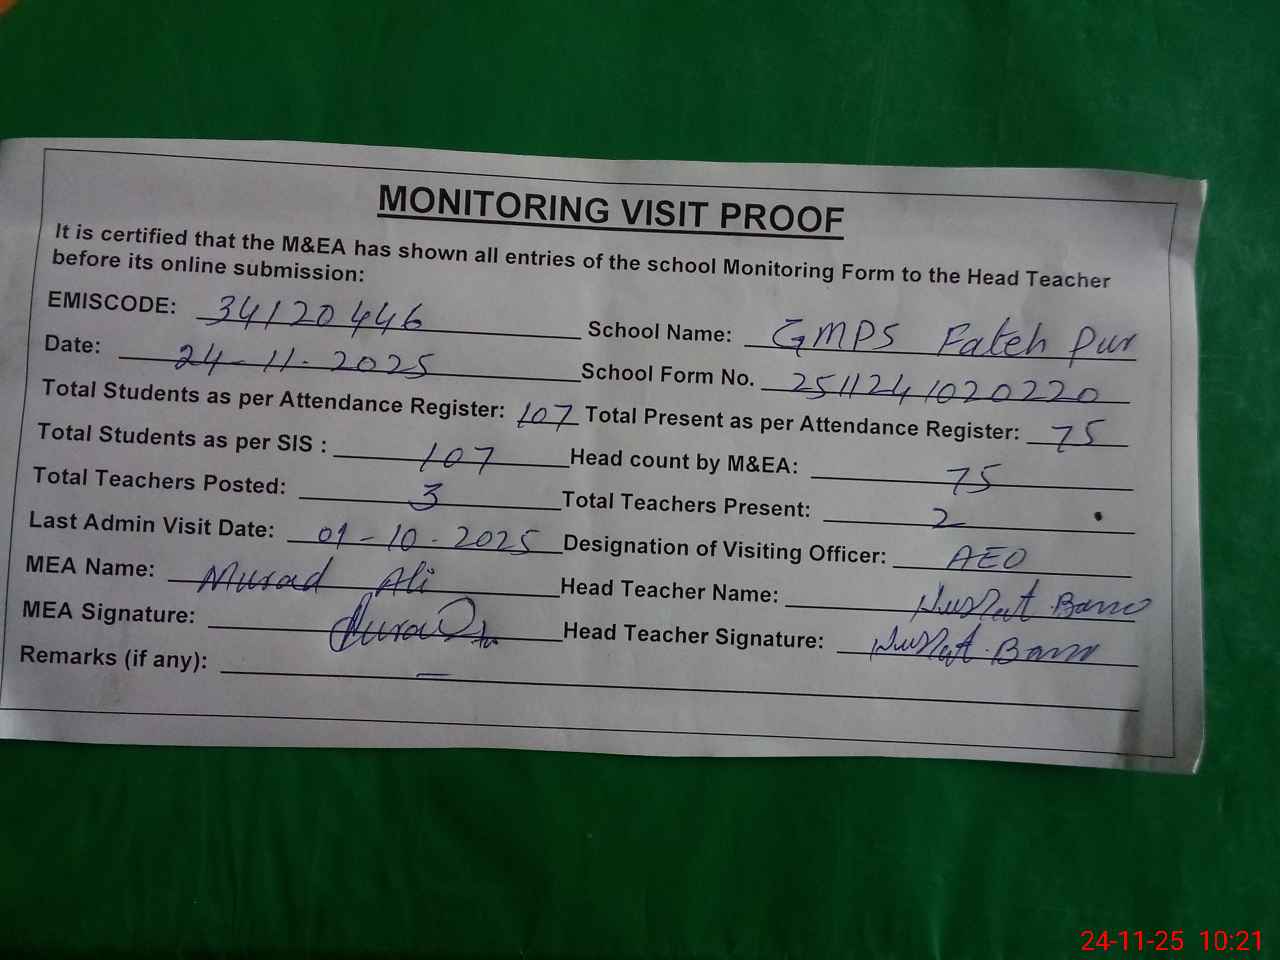 MONITORING VISIT PROOF
It is certified that the M&EA has shown all entries of the school Monitoring Form to the Head Teacher
before its online submission:
EMISCODE: 34120446 School Name: GMPS Fateh Pur
Date: 24-11-2025 School Form No. 2511241020220
Total Students as per Attendance Register: 107 Total Present as per Attendance Register: 75
Total Students as per SIS : 107 Head count by M&EA: 75
Total Teachers Posted: 3 Total Teachers Present: 2
Last Admin Visit Date: 01-10-2025 Designation of Visiting Officer: AEO
MEA Name: Murad Ali Head Teacher Name: Nusrat Bano
MEA Signature: Head Teacher Signature: Nusrat Bano
Remarks (if any): —
24-11-25 10:21